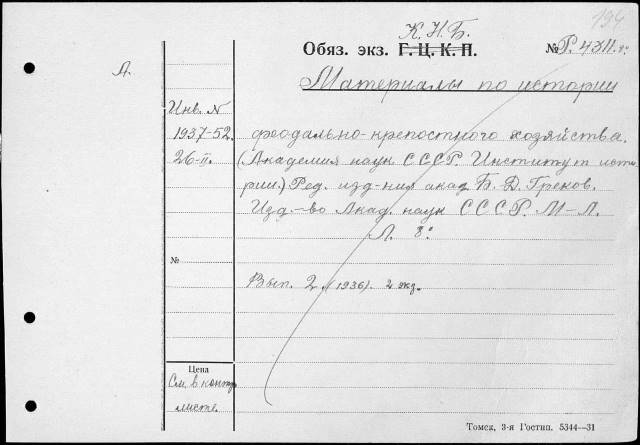 194
К. Н. Б.
Обяз. экз. Г. Ц. К. П. № Р. 4311. 8°
Л.
Материалы по истории
Инв. N
1937-52. феодально-крепостного хозяйства.
26-II. (Академия наук СССР. Институт исто-
рии.) Ред. изд-ния акад. Б. Д. Греков.
Изд-во Акад. наук СССР. М-Л.
Л. 8°
№
Вып. 2 (1936). 2 экз.
Цена
См. в контр.
листе.
Томск, 3-я Гостип. 5344—31